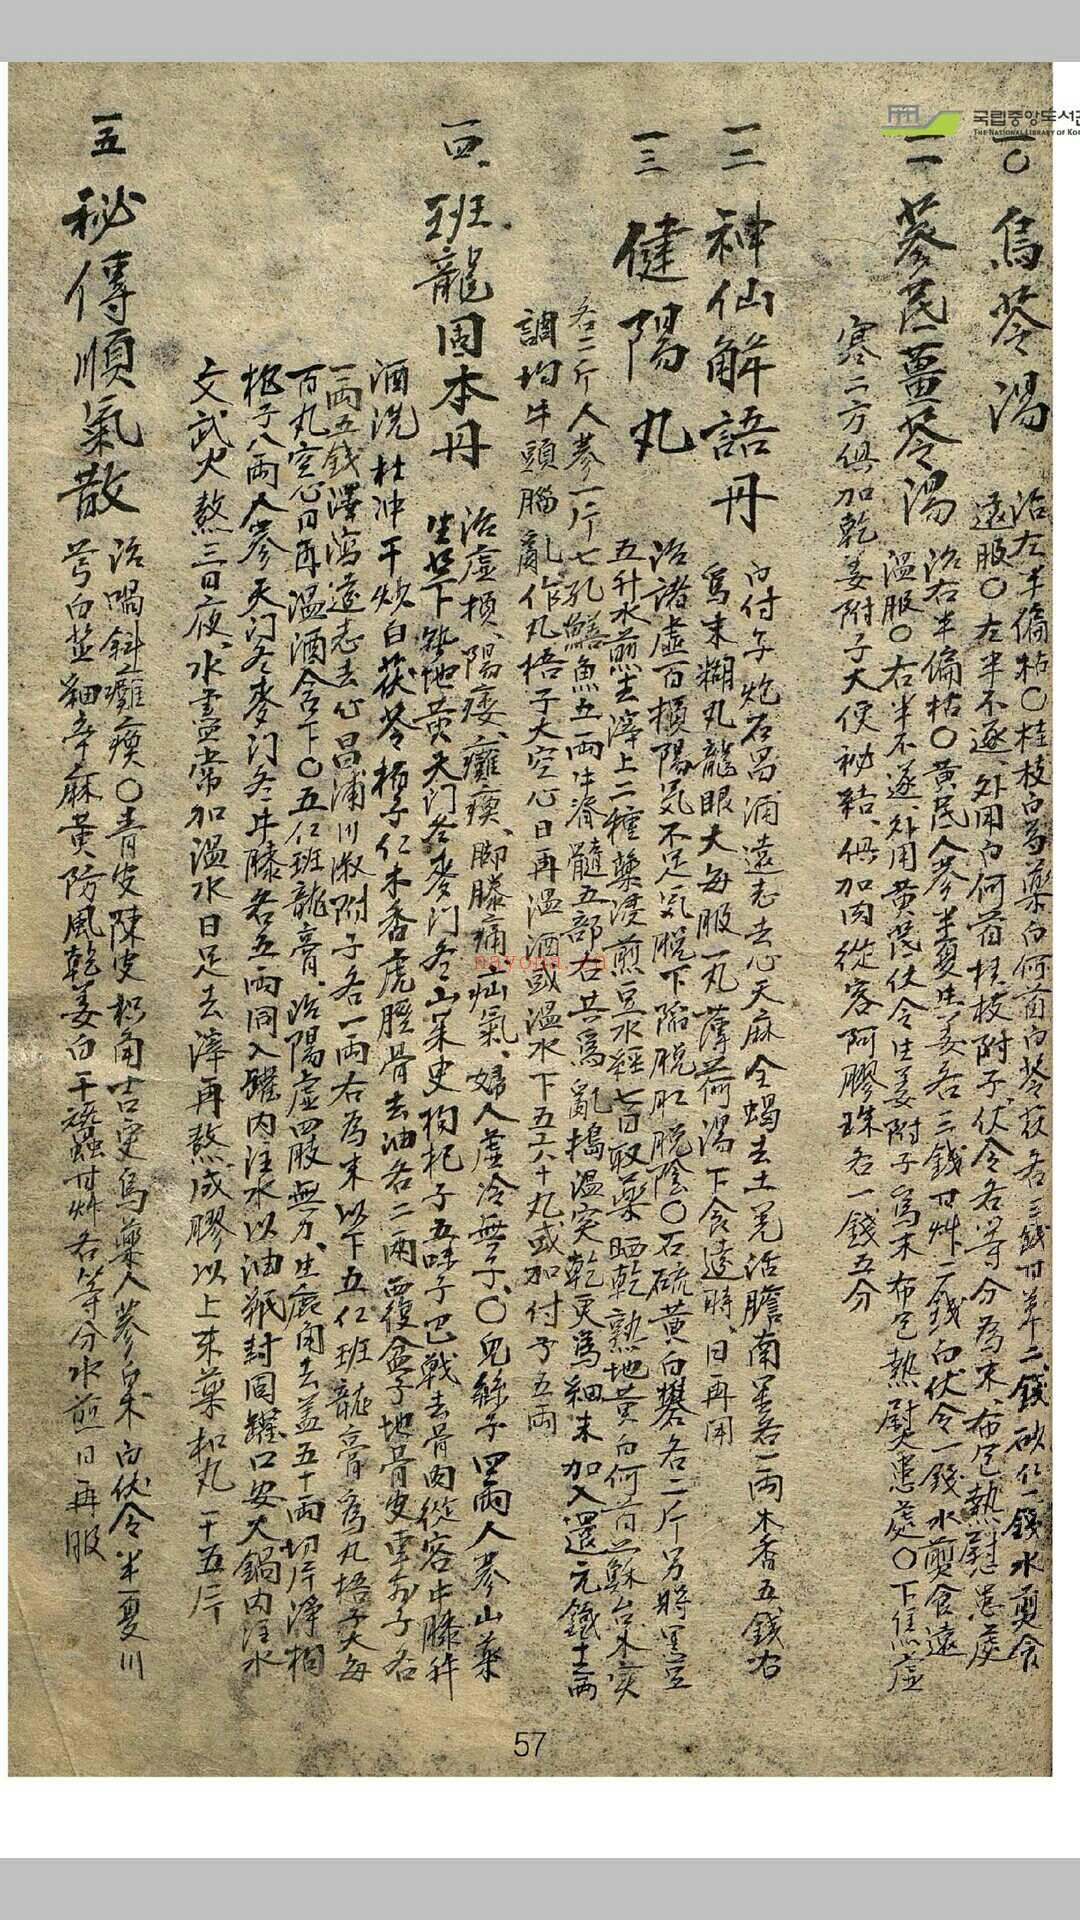 국립중앙도서관
THE NATIONAL LIBRARY OF KOREA
一〇 烏苓湯
治左半偏枯〇桂枝白芍藥白何首白苓茯各三戔甘草二錢砂仁一錢水煎食
遠服〇左半不遂、外用白何首桂枝附子伏令各等分為末、布包熱慰患處
一一 蔘芪薑苓湯
治右半偏枯〇黃芪人蔘半夏生姜各三錢甘艸二錢白伏令一錢水煎食遠
溫服〇右半不遂、外用黃芪伏令生姜附子為末布包熱熨患處〇下焦虛
寒二方俱加乾姜附子大便祕結、俱加肉從容阿膠珠各一錢五分
一二 神仙解語丹
白付子炮石昌浦遠志去心天麻全蝎去土羌活膽南星各一兩木香五錢右
為末糊丸龍眼大每服一丸薄荷湯下食遠時、日再用
一三 健陽丸
治諸虛百損陽気不足気脫下陷脫肛脫陰〇石硫黃白礬各二斤另將黑豆
五升水煎去滓上二種藥浸煎豆水經七日取藥晒乾熟地黃白何首烏蘇台木實
各二斤人蔘一斤七孔鱔魚五兩牛脊髓五部右共為亂搗溫突乾更為細末加入還元鐵十二兩
調均牛頭腦亂作丸梧子大空心日再溫酒或溫水下五六十丸或加付子五兩
一四、班龍固本丹
治虛損、陽痿、癱瘓、脚膝痛、疝氣、婦人虛冷無子、〇兎絲子四兩人蔘山藥
生芐熟地黃天門冬麥門冬山茱吏枸杞子五味子巴戟去骨肉從容牛膝幷
酒洗杜冲干炒白茯苓栢子仁木香虎脛骨去油各二兩覆盆子地骨皮車前子各
一兩五錢澤瀉遠志去心昌浦川椒附子各一兩右為末以下五仁班龍膏為丸梧子大每
百丸空心日再溫酒含下〇五仁班龍膏、治陽虛四肢無力、生鹿角去盖五十兩切片淨枸
杞子八兩人蔘天門冬麥門冬牛膝各五兩同入罐內注水以油帋封固罐口安大鍋內注水
文武火熬三日夜、水盡常加溫水日足去滓再熬成膠以上末藥和丸一十五斤
一五 秘傳順氣散
治喎斜癱瘓〇靑皮陳皮枳角吉更烏藥人蔘白朮白伏令半夏川
芎白芷細辛麻黃防風乾姜白干蠶甘艸各等分水煎日再服
nayona.cn
57